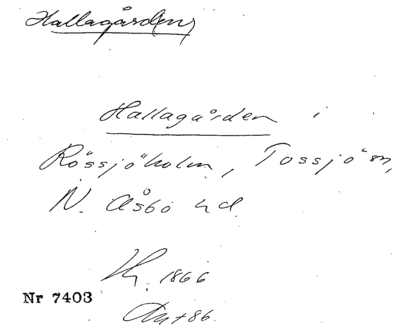 Hallagården
Hallagården i
Rössjöholm, Tossjö sn,
N. Åsbo hd.
1866
Nr 7403